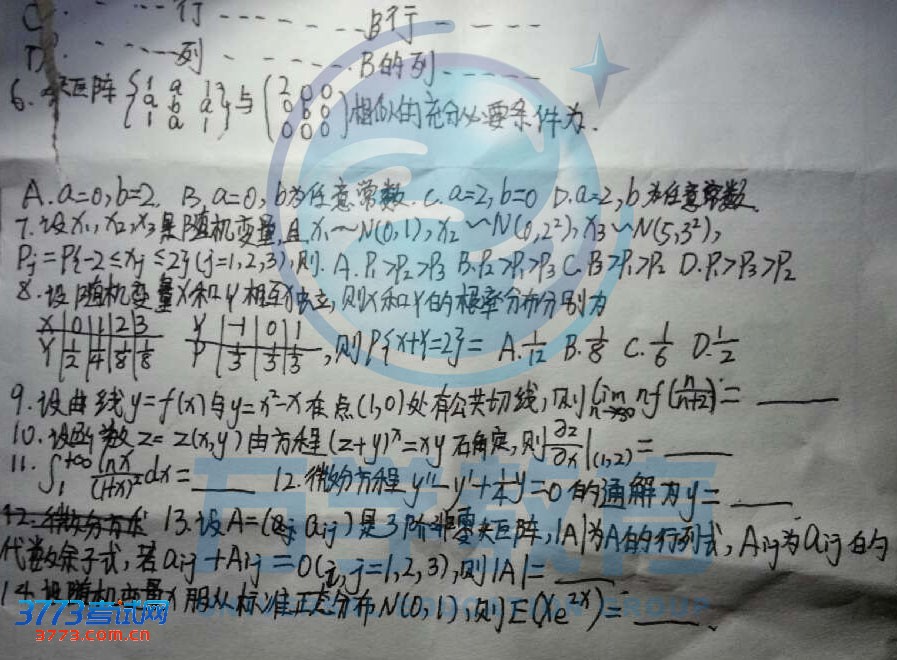 C. 行 B行
D. 列 B的列
6. 矩阵 {1 a 1 与 (2 0 0
a b a} 0 b 0 )相似的充分必要条件为.
1 a 1 0 0 0
A.a=0,b=2. B.a=0,b为任意常数. C.a=2,b=0 D.a=2,b为任意常数.
7.设X₁,X₂,X₃是随机变量,且X₁~N(0,1),X₂~N(0,2²),X₃~N(5,3²),
Pj=P{-2≤Xj≤2}(j=1,2,3),则. A.P₁>P₂>P₃ B.P₂>P₁>P₃ C.P₃>P₁>P₂ D.P₁>P₃>P₂
8.设随机变量X和Y相互独立,则X和Y的概率分布分别为
X 0 1 2 3 Y -1 0 1
Y 1/2 1/4 1/8 1/8 P 1/3 1/3 1/3 ,则P{X+Y=2}= A.1/12 B.1/8 C.1/6 D.1/2
9.设曲线y=f(x)与y=x²-x在点(1,0)处有公共切线,则lim n→∞ nf(n/(n+2))= ____
10.设函数z=z(x,y)由方程(z+y)ˣ=xy确定,则∂z/∂x|(1,2)= ____
11. ∫₁^{+∞} lnx/(1+x)² dx= ____ 12.微分方程y''-y'+1/4y=0的通解为y= ____
12.微分方程 13.设A=(aij)是3阶非零矩阵,|A|为A的行列式,Aij为aij的
代数余子式,若aij+Aij=0(i,j=1,2,3),则|A|= ____
14.设随机变量X服从标准正态分布N(0,1),则E(Xe^{2X})= ____.
3773考试网
3773.com.cn